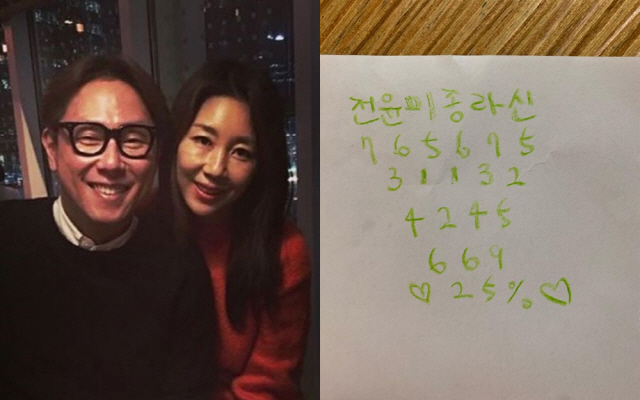 전윤미종라신
7 6 5 6 7 5
3 1 1 3 2
4 2 4 5
6 6 9
♡ 25% ♡